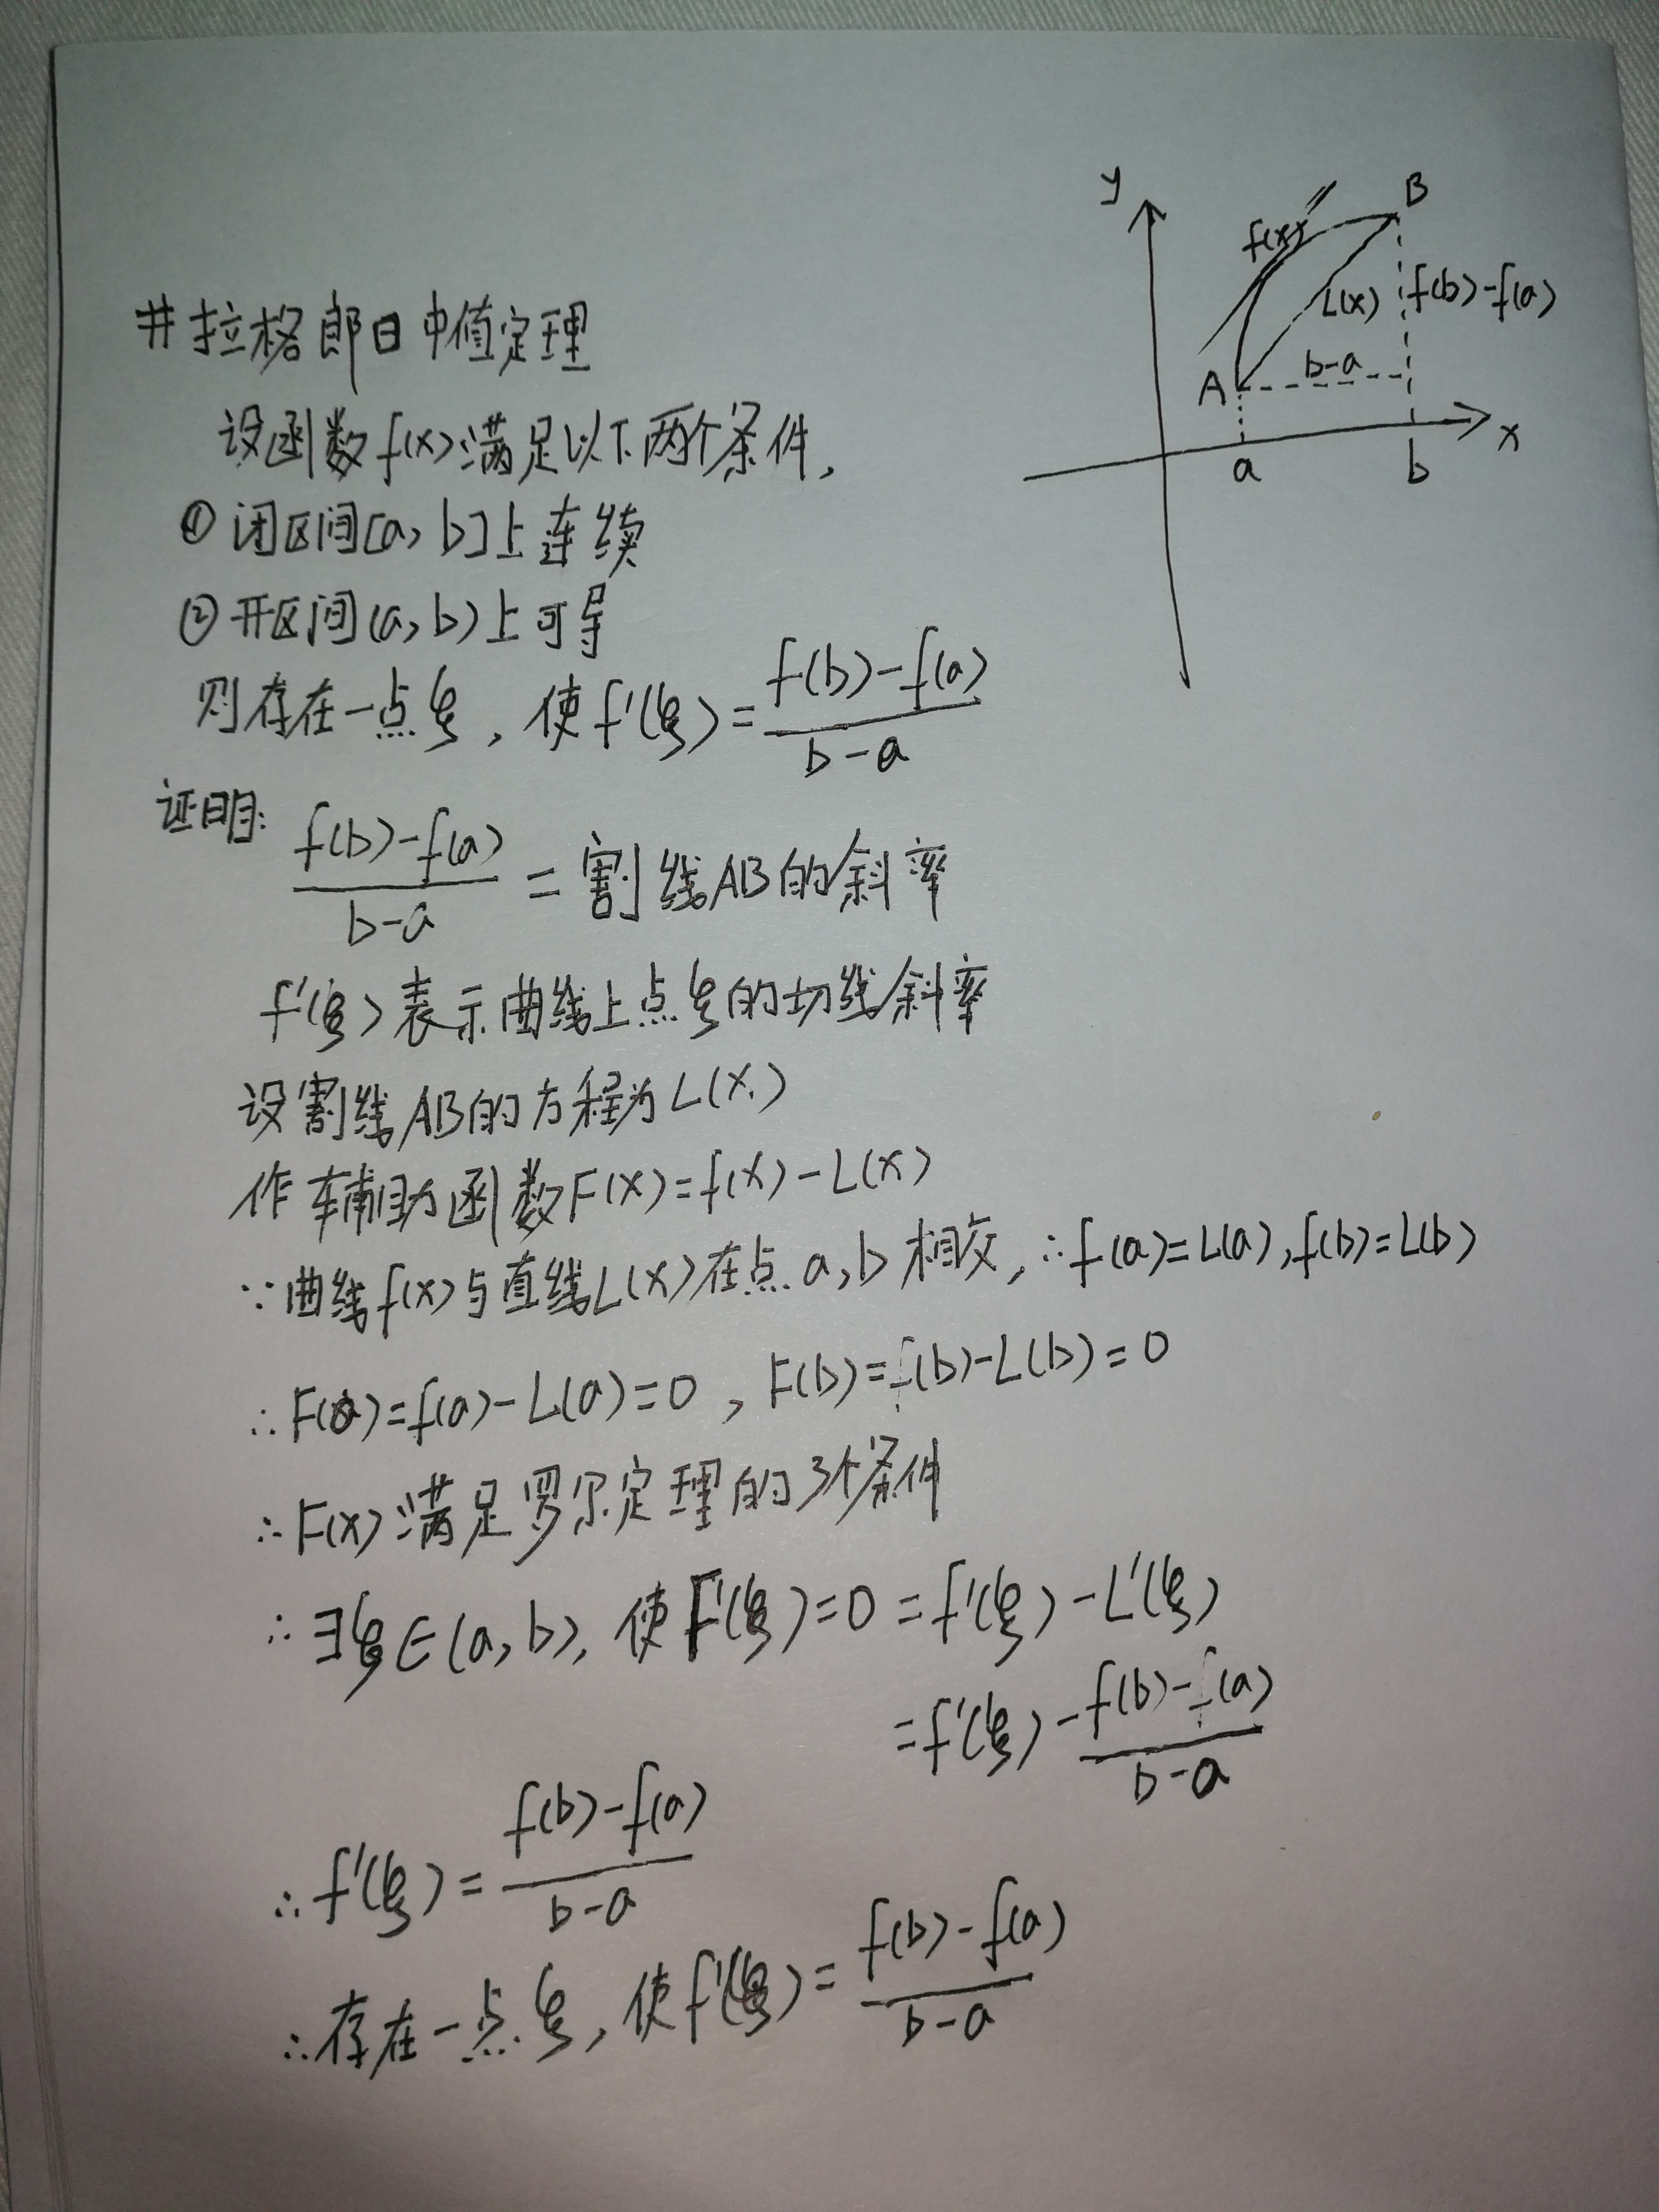 y
B
f(x)
L(x)
f(b)-f(a)
b-a
A
a
b
x
#拉格郎日中值定理
设函数f(x)满足以下两个条件,
①闭区间[a,b]上连续
②开区间(a,b)上可导
则存在一点ξ,使f'(ξ)=\frac{f(b)-f(a)}{b-a}
证明:
\frac{f(b)-f(a)}{b-a}=割线AB的斜率
f'(ξ)表示曲线上点ξ的切线斜率
设割线AB的方程为L(x)
作辅助函数F(x)=f(x)-L(x)
∵曲线f(x)与直线L(x)在点a,b相交,∴f(a)=L(a),f(b)=L(b)
∴F(a)=f(a)-L(a)=0,F(b)=f(b)-L(b)=0
∴F(x)满足罗尔定理的3个条件
∴∃ξ∈(a,b),使F'(ξ)=0=f'(ξ)-L'(ξ)
=f'(ξ)-\frac{f(b)-f(a)}{b-a}
∴f'(ξ)=\frac{f(b)-f(a)}{b-a}
∴存在一点ξ,使f'(ξ)=\frac{f(b)-f(a)}{b-a}